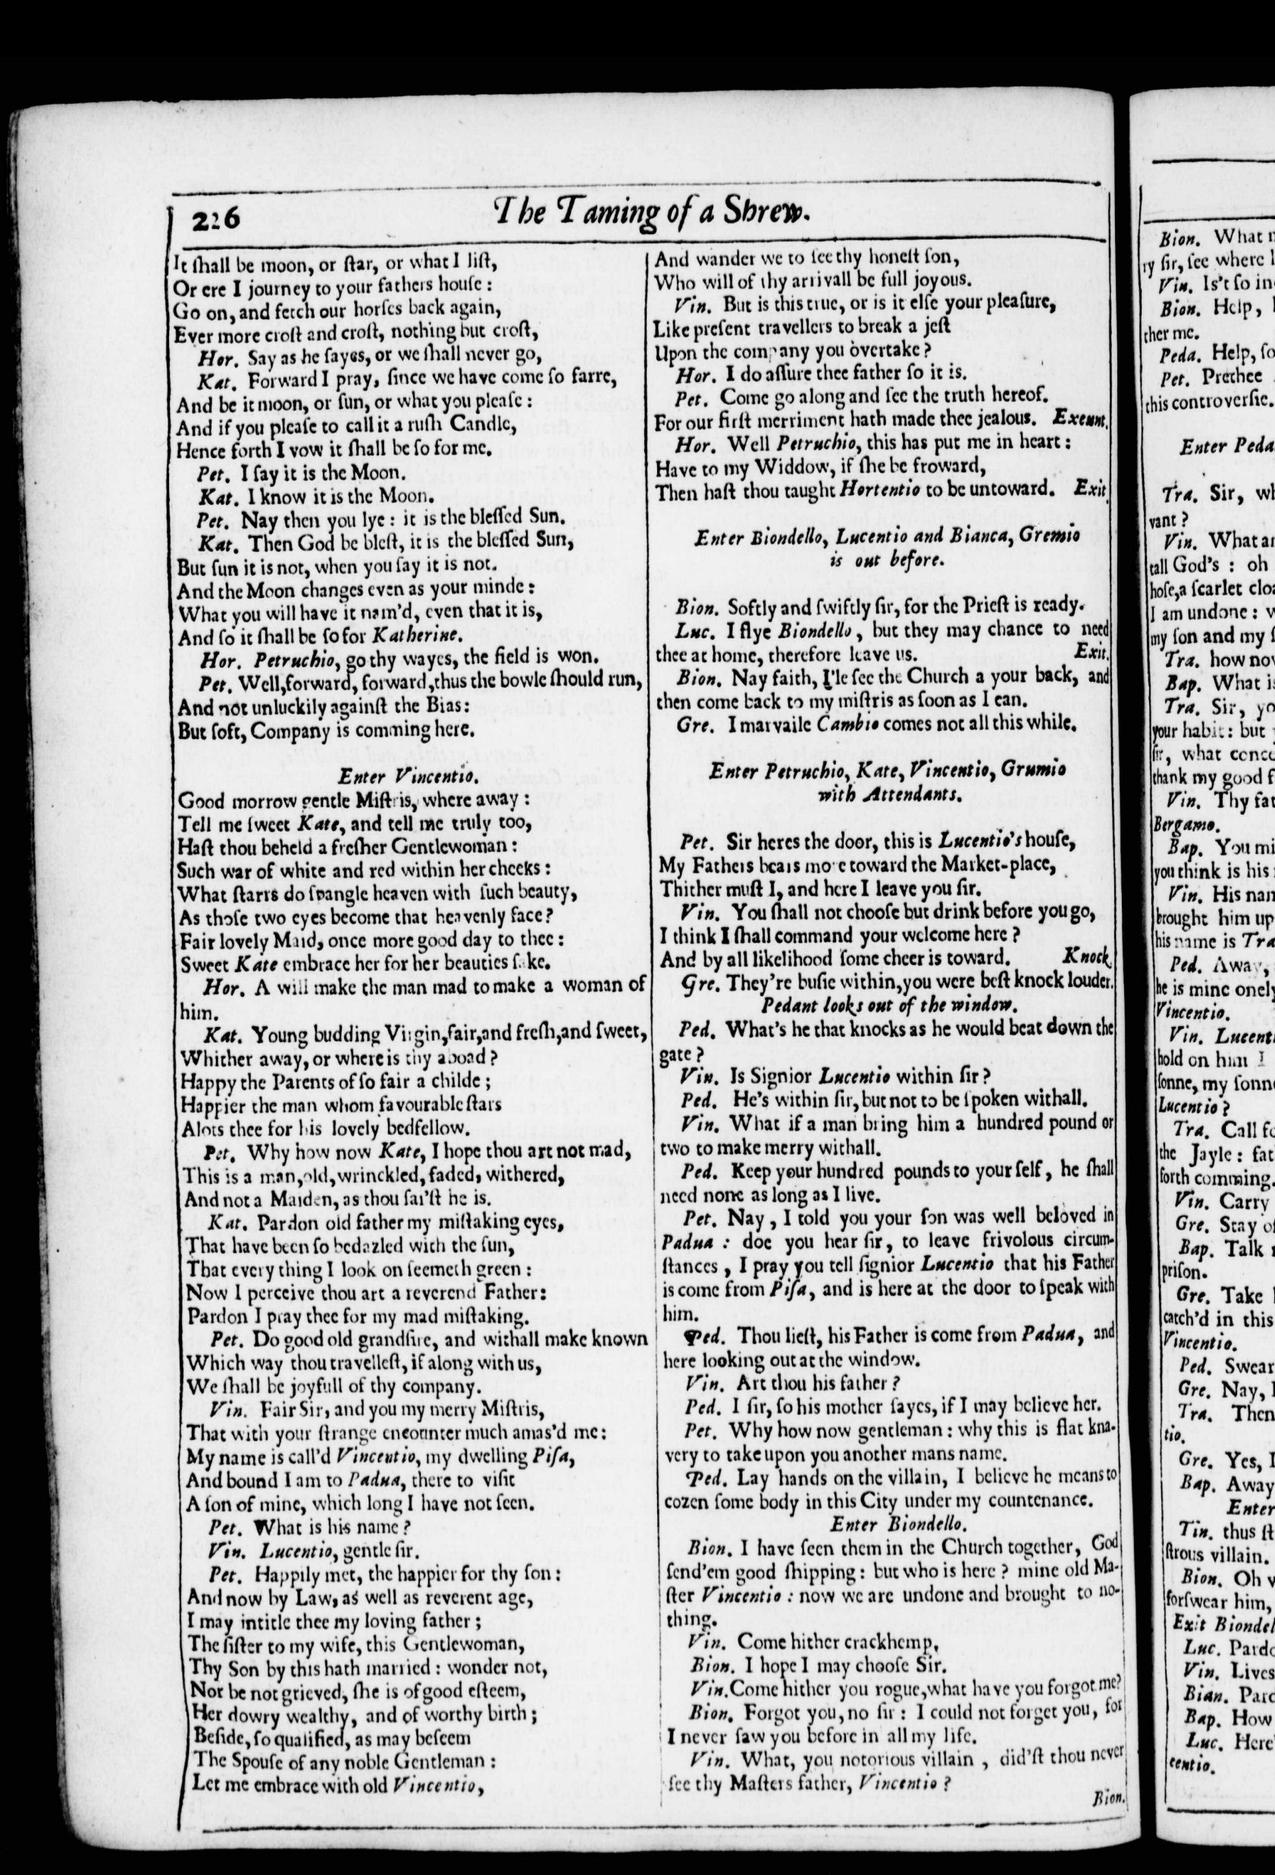 226
The Taming of a Shrew.
It ſhall be moon, or ſtar, or what I liſt,
Or ere I journey to your fathers houſe :
Go on, and fetch our horſes back again,
Ever more croſt and croſt, nothing but croſt,
Hor. Say as he ſayes, or we ſhall never go,
Kat. Forward I pray, ſince we have come ſo farre,
And be it moon, or ſun, or what you pleaſe :
And if you pleaſe to call it a ruſh Candle,
Hence forth I vow it ſhall be ſo for me.
Pet. I ſay it is the Moon.
Kat. I know it is the Moon.
Pet. Nay then you lye : it is the bleſſed Sun.
Kat. Then God be bleſt, it is the bleſſed Sun,
But ſun it is not, when you ſay it is not.
And the Moon changes even as your minde :
What you will have it nam'd, even that it is,
And ſo it ſhall be ſo for Katherine.
Hor. Petruchio, go thy wayes, the field is won.
Pet. Well, forward, forward, thus the bowle ſhould run,
And not unluckily againſt the Bias:
But ſoft, Company is comming here.
Enter Vincentio.
Good morrow gentle Miſtris, where away :
Tell me ſweet Kate, and tell me truly too,
Haſt thou beheld a freſher Gentlewoman :
Such war of white and red within her cheeks :
What ſtarrs do ſpangle heaven with ſuch beauty,
As thoſe two eyes become that heavenly face?
Fair lovely Maid, once more good day to thee :
Sweet Kate embrace her for her beauties ſake.
Hor. A will make the man mad to make a woman of
him.
Kat. Young budding Virgin, fair, and freſh, and ſweet,
Whither away, or where is thy aboad ?
Happy the Parents of ſo fair a childe ;
Happier the man whom favourable ſtars
Alots thee for his lovely bedfellow.
Pet. Why how now Kate, I hope thou art not mad,
This is a man, old, wrinckled, faded, withered,
And not a Maiden, as thou ſai'ſt he is.
Kat. Pardon old father my miſtaking eyes,
That have been ſo bedazled with the ſun,
That every thing I look on ſeemeth green :
Now I perceive thou art a reverend Father:
Pardon I pray thee for my mad miſtaking.
Pet. Do good old grandſire, and withall make known
Which way thou travelleſt, if along with us,
We ſhall be joyfull of thy company.
Vin. Fair Sir, and you my merry Miſtris,
That with your ſtrange encounter much amas'd me:
My name is call'd Vincentio, my dwelling Piſa,
And bound I am to Padua, there to viſit
A ſon of mine, which long I have not ſeen.
Pet. What is his name ?
Vin. Lucentio, gentle ſir.
Pet. Happily met, the happier for thy ſon :
And now by Law, as well as reverent age,
I may intitle thee my loving father ;
The ſiſter to my wife, this Gentlewoman,
Thy Son by this hath married : wonder not,
Nor be not grieved, ſhe is of good eſteem,
Her dowry wealthy, and of worthy birth ;
Beſide, ſo qualified, as may beſeem
The Spouſe of any noble Gentleman :
Let me embrace with old Vincentio,
And wander we to ſee thy honeſt ſon,
Who will of thy arrivall be full joyous.
Vin. But is this true, or is it elſe your pleaſure,
Like preſent travellers to break a jeſt
Upon the company you overtake ?
Hor. I do aſſure thee father ſo it is.
Pet. Come go along and ſee the truth hereof.
For our firſt merriment hath made thee jealous. Exeunt.
Hor. Well Petruchio, this has put me in heart :
Have to my Widdow, if ſhe be froward,
Then haſt thou taught Hortentio to be untoward. Exit.
Enter Biondello, Lucentio and Bianca, Gremio
is out before.
Bion. Softly and ſwiftly ſir, for the Prieſt is ready.
Luc. I flye Biondello, but they may chance to need
thee at home, therefore leave us. Exit.
Bion. Nay faith, I'le ſee the Church a your back, and
then come back to my miſtris as ſoon as I can.
Gre. I marvaile Cambio comes not all this while.
Enter Petruchio, Kate, Vincentio, Grumio
with Attendants.
Pet. Sir heres the door, this is Lucentio's houſe,
My Fathers bears more toward the Market-place,
Thither muſt I, and here I leave you ſir.
Vin. You ſhall not chooſe but drink before you go,
I think I ſhall command your welcome here ?
And by all likelihood ſome cheer is toward. Knock.
Gre. They're buſie within, you were beſt knock louder.
Pedant looks out of the window.
Ped. What's he that knocks as he would beat down the
gate ?
Vin. Is Signior Lucentio within ſir ?
Ped. He's within ſir, but not to be ſpoken withall.
Vin. What if a man bring him a hundred pound or
two to make merry withall.
Ped. Keep your hundred pounds to your ſelf, he ſhall
need none as long as I live.
Pet. Nay, I told you your ſon was well beloved in
Padua : doe you hear ſir, to leave frivolous circum-
ſtances, I pray you tell ſignior Lucentio that his Father
is come from Piſa, and is here at the door to ſpeak with
him.
Ped. Thou lieſt, his Father is come from Padua, and
here looking out at the window.
Vin. Art thou his father ?
Ped. I ſir, ſo his mother ſayes, if I may believe her.
Pet. Why how now gentleman : why this is flat kna-
very to take upon you another mans name.
Ped. Lay hands on the villain, I believe he means to
cozen ſome body in this City under my countenance.
Enter Biondello.
Bion. I have ſeen them in the Church together, God
ſend'em good ſhipping : but who is here ? mine old Ma-
ſter Vincentio : now we are undone and brought to no-
thing.
Vin. Come hither crackhemp,
Bion. I hope I may chooſe Sir.
Vin. Come hither you rogue, what have you forgot me?
Bion. Forgot you, no ſir : I could not forget you, for
I never ſaw you before in all my life.
Vin. What, you notorious villain, did'ſt thou never
ſee thy Maſters father, Vincentio ?
Bion.
Bion. What
ry ſir, ſee where
Vin. Is't ſo in
Bion. Help,
ther me.
Peda. Help,
Pet. Prethee
this controverſie.
Enter Peda
Tra. Sir,
vant ?
Vin. What
call God's : oh
hoſe, a ſcarlet
I am undone :
my ſon and my
Tra. how now
Bap. What is
Tra. Sir,
your habit : but
ſir, what
thank my good
Vin. Thy
Bergamo.
Bap. You
you think is his
Vin. His
brought him up
his name is
Ped. Away,
he is mine onely
Vincentio.
Vin.
hold on him I
ſonne, my ſonne
Lucentio ?
Tra. Call
the Jayle :
forth comming.
Vin. Carry
Gre. Stay
Bap. Talk
priſon.
Gre. Take
catch'd in this
Vincentio.
Ped. Swear
Gre. Nay,
Tra. Then
tio.
Gre. Yes,
Bap. Away
Enter
Tin. thus
ſtrous villain.
Bion. Oh
forſwear him,
Exit
Luc.
Vin. Lives
Bian.
Bap. How
Luc.
centio.